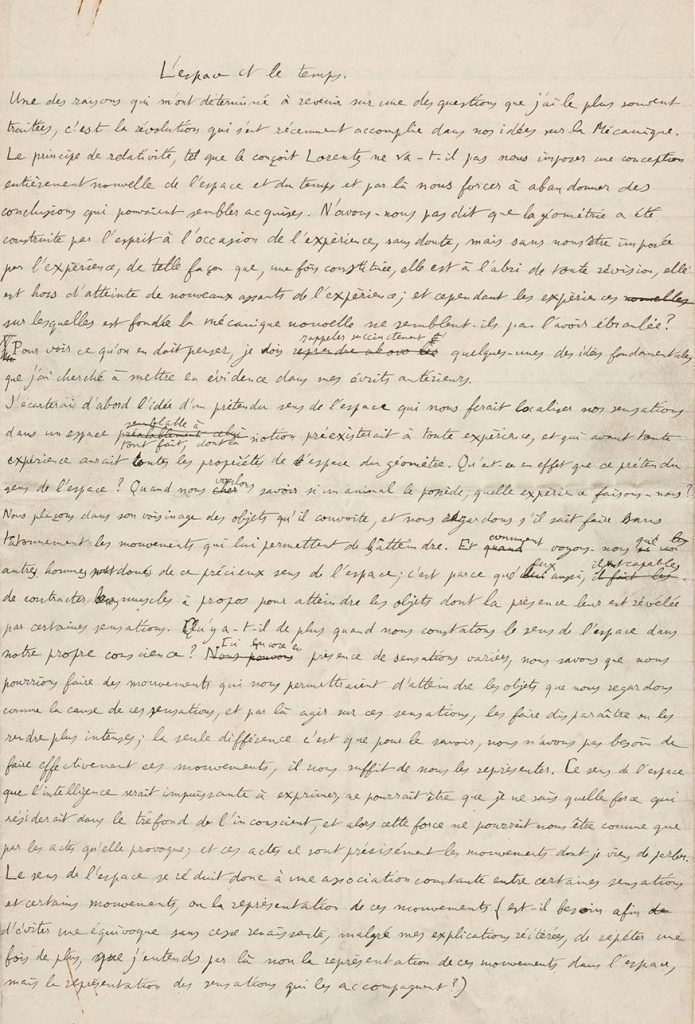 L'espace et le temps.
Une des raisons qui m'ont déterminé à revenir sur une des questions que j'ai le plus souvent
traitées, c'est la révolution qui s'est récemment accomplie dans nos idées sur la Mécanique.
Le principe de relativité, tel que le conçoit Lorentz, ne va-t-il pas nous imposer une conception
entièrement nouvelle de l'espace et du temps et par là nous forcer à abandonner des
conclusions qui pouvaient sembler acquises. N'avons-nous pas dit que la géométrie a été
construite par l'esprit à l'occasion de l'expérience, sans doute, mais sans nous être imposée
par l'expérience, de telle façon que, une fois constituée, elle est à l'abri de toute révision, elle
est hors d'atteinte de nouveaux assauts de l'expérience; et cependant les expériences nouvelles
sur lesquelles est fondée la mécanique nouvelle ne semblent-ils pas l'avoir ébranlée?
rappeler succinctement
Pour voir ce qu'on en doit penser, je dois reprendre quelques-unes des idées fondamentales
que j'ai cherché à mettre en évidence dans mes écrits antérieurs.
J'écarterai d'abord l'idée d'un prétendu sens de l'espace qui nous ferait localiser nos sensations
semblable à
dans un espace préalablement notion préexisterait à toute expérience, et qui avant toute
tout fait, dont la
expérience aurait toutes les propriétés de l'espace du géomètre. Qu'est-ce en effet que ce prétendu
voulons
sens de l'espace? Quand nous savoir si un animal le possède, quelle expérience faisons-nous?
Nous plaçons dans son voisinage des objets qu'il convoite, et nous regardons s'il sait faire sans
comment que les
tâtonnement les mouvements qui lui permettent de l'atteindre. Et quand voyons-nous
eux sont capables
autres hommes sont doués de ce précieux sens de l'espace; c'est parce que aussi, il fait les
de contracter les muscles à propos pour atteindre les objets dont la présence leur est révélée
par certaines sensations. Qu'y a-t-il de plus quand nous constatons le sens de l'espace dans
Ici encore en
notre propre conscience? Nous pouvons présence de sensations variées, nous savons que nous
pourrions faire des mouvements qui nous permettraient d'atteindre les objets que nous regardons
comme la cause de ces sensations, et par là agir sur ces sensations, les faire disparaître ou les
rendre plus intenses; la seule différence c'est que pour le savoir, nous n'avons pas besoin de
faire effectivement ces mouvements, il nous suffit de nous les représenter. Ce sens de l'espace
que l'intelligence serait impuissante à exprimer, ne pourrait être que je ne sais quelle force qui
résiderait dans le tréfond de l'inconscient, et alors cette force ne pourrait nous être connue que
par les actes qu'elle provoque; et ces actes ce sont précisément les mouvements dont je viens de parler.
Le sens de l'espace se réduit donc à une association constante entre certaines sensations
et certains mouvements, ou la représentation de ces mouvements (est-il besoin afin de
d'éviter une équivoque sans cesse renaissante, malgré mes explications réitérées, de répéter une
fois de plus, que j'entends par là non la représentation de ces mouvements dans l'espace,
mais la représentation des sensations qui les accompagnent?)